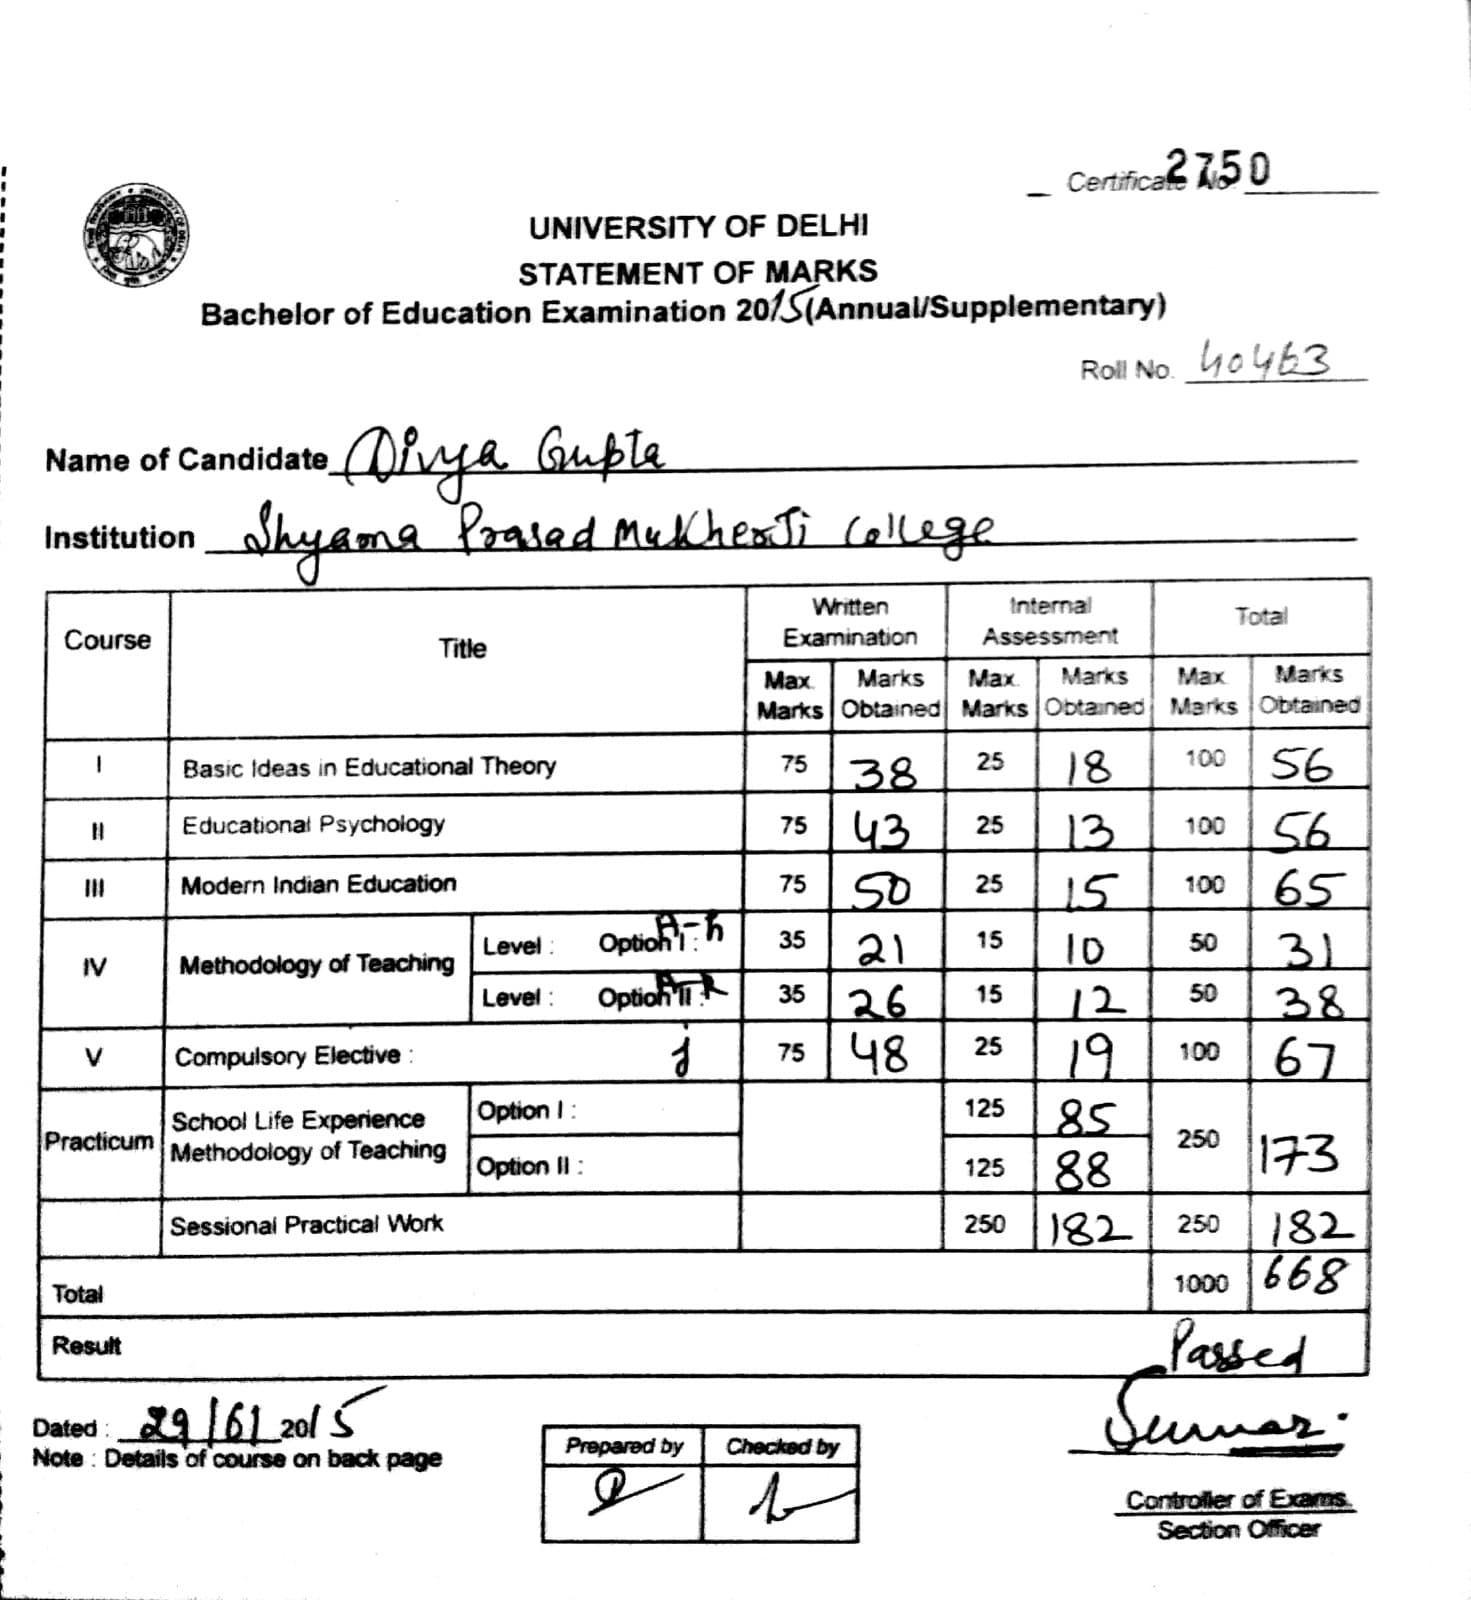 Certificate No. 2750
UNIVERSITY OF DELHI
STATEMENT OF MARKS
Bachelor of Education Examination 2015 (Annual/Supplementary)
Roll No. 40463
Name of Candidate Divya Gupta
Institution Shyama Prasad Mukherji College
Course Title Written Examination Internal Assessment Total
Max. Marks Marks Obtained Max. Marks Marks Obtained Max. Marks Marks Obtained
I Basic Ideas in Educational Theory 75 38 25 18 100 56
II Educational Psychology 75 43 25 13 100 56
III Modern Indian Education 75 50 25 15 100 65
IV Methodology of Teaching Level : Option I : 35 21 15 10 50 31
Level : Option II : 35 26 15 12 50 38
V Compulsory Elective : j 75 48 25 19 100 67
Practicum School Life Experience Methodology of Teaching Option I : 125 85 250 173
Option II : 125 88
Sessional Practical Work 250 182 250 182
Total 1000 668
Result Passed
Dated : 29/6/ 2015
Note : Details of course on back page
Prepared by Checked by
Controller of Exams.
Section Officer